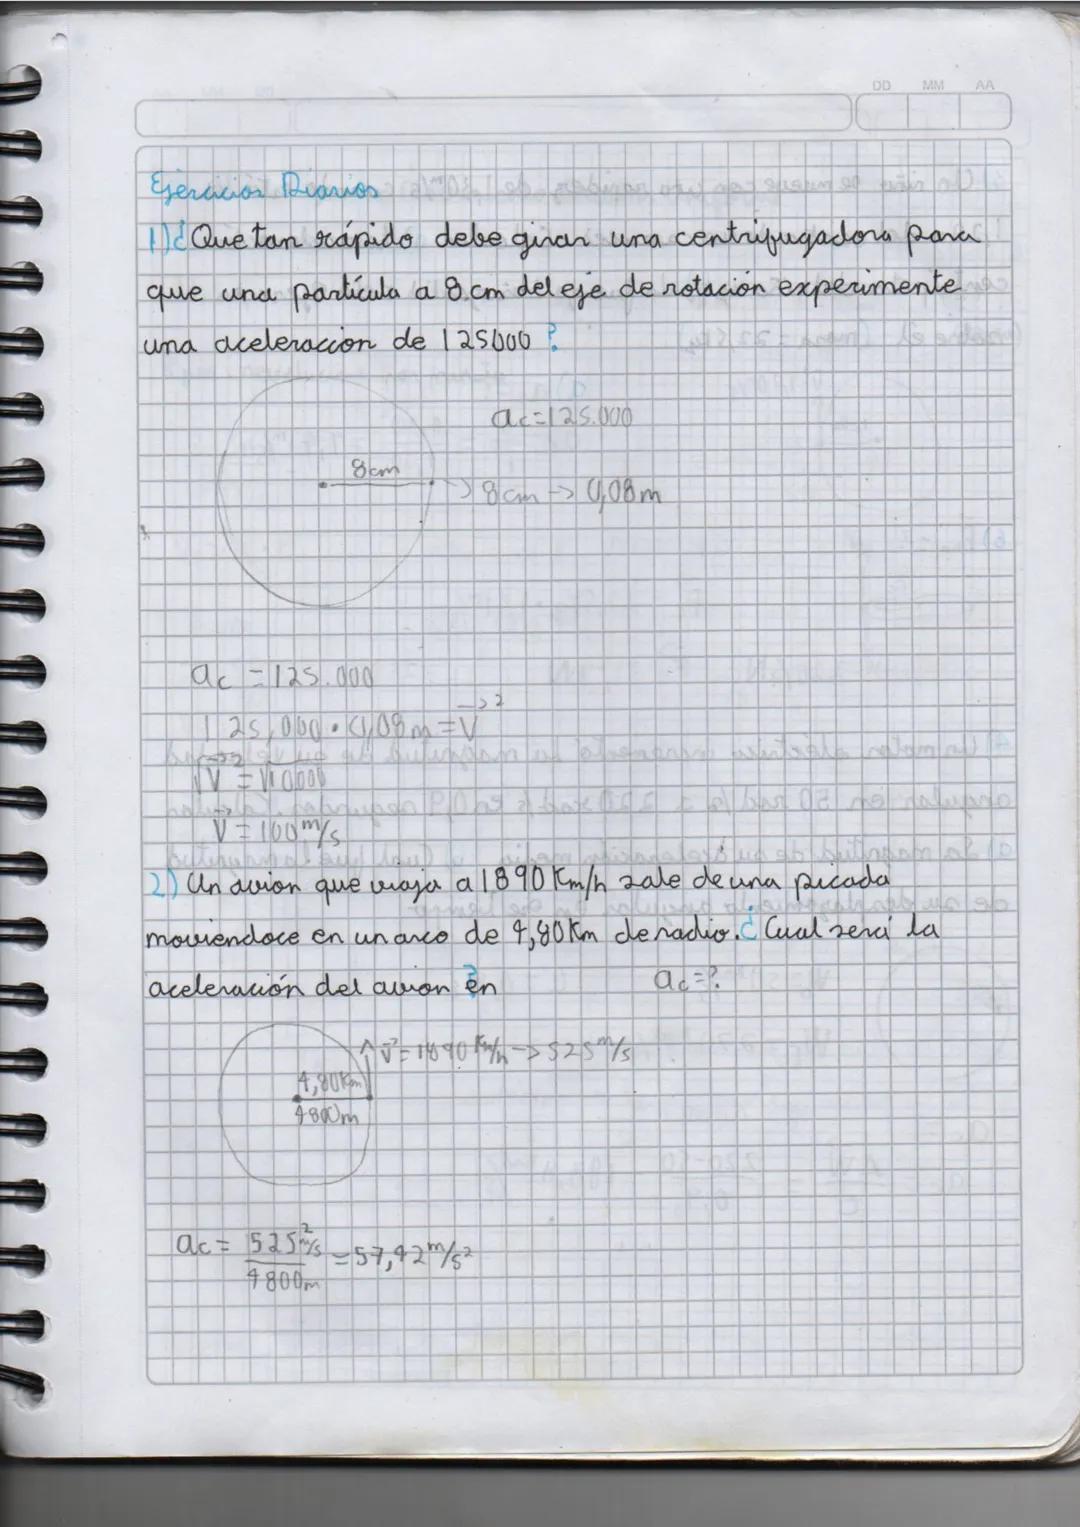 DD MM AA
Ejercicios Diarios
1)¿Que tan rápido debe girar una centrifugadora para
que una partícula a 8 cm del eje de rotación experimente
una aceleración de 125000?
ac=125.000
8cm
8cm -> 0,08m
ac =125.000
125,000 · 0,08m = V²
√V² = √10000
V = 100 m/s
2) Un avion que viaja a 1890 Km/h sale de una picada
moviendoce en un arco de 4,80 Km de radio.¿Cual será la
aceleración del avion en?
ac=?
V = 1890 Km/h -> 525 m/s
4,80Km
4800m
ac= 525² m/s = 57,42 m/s²
4800m